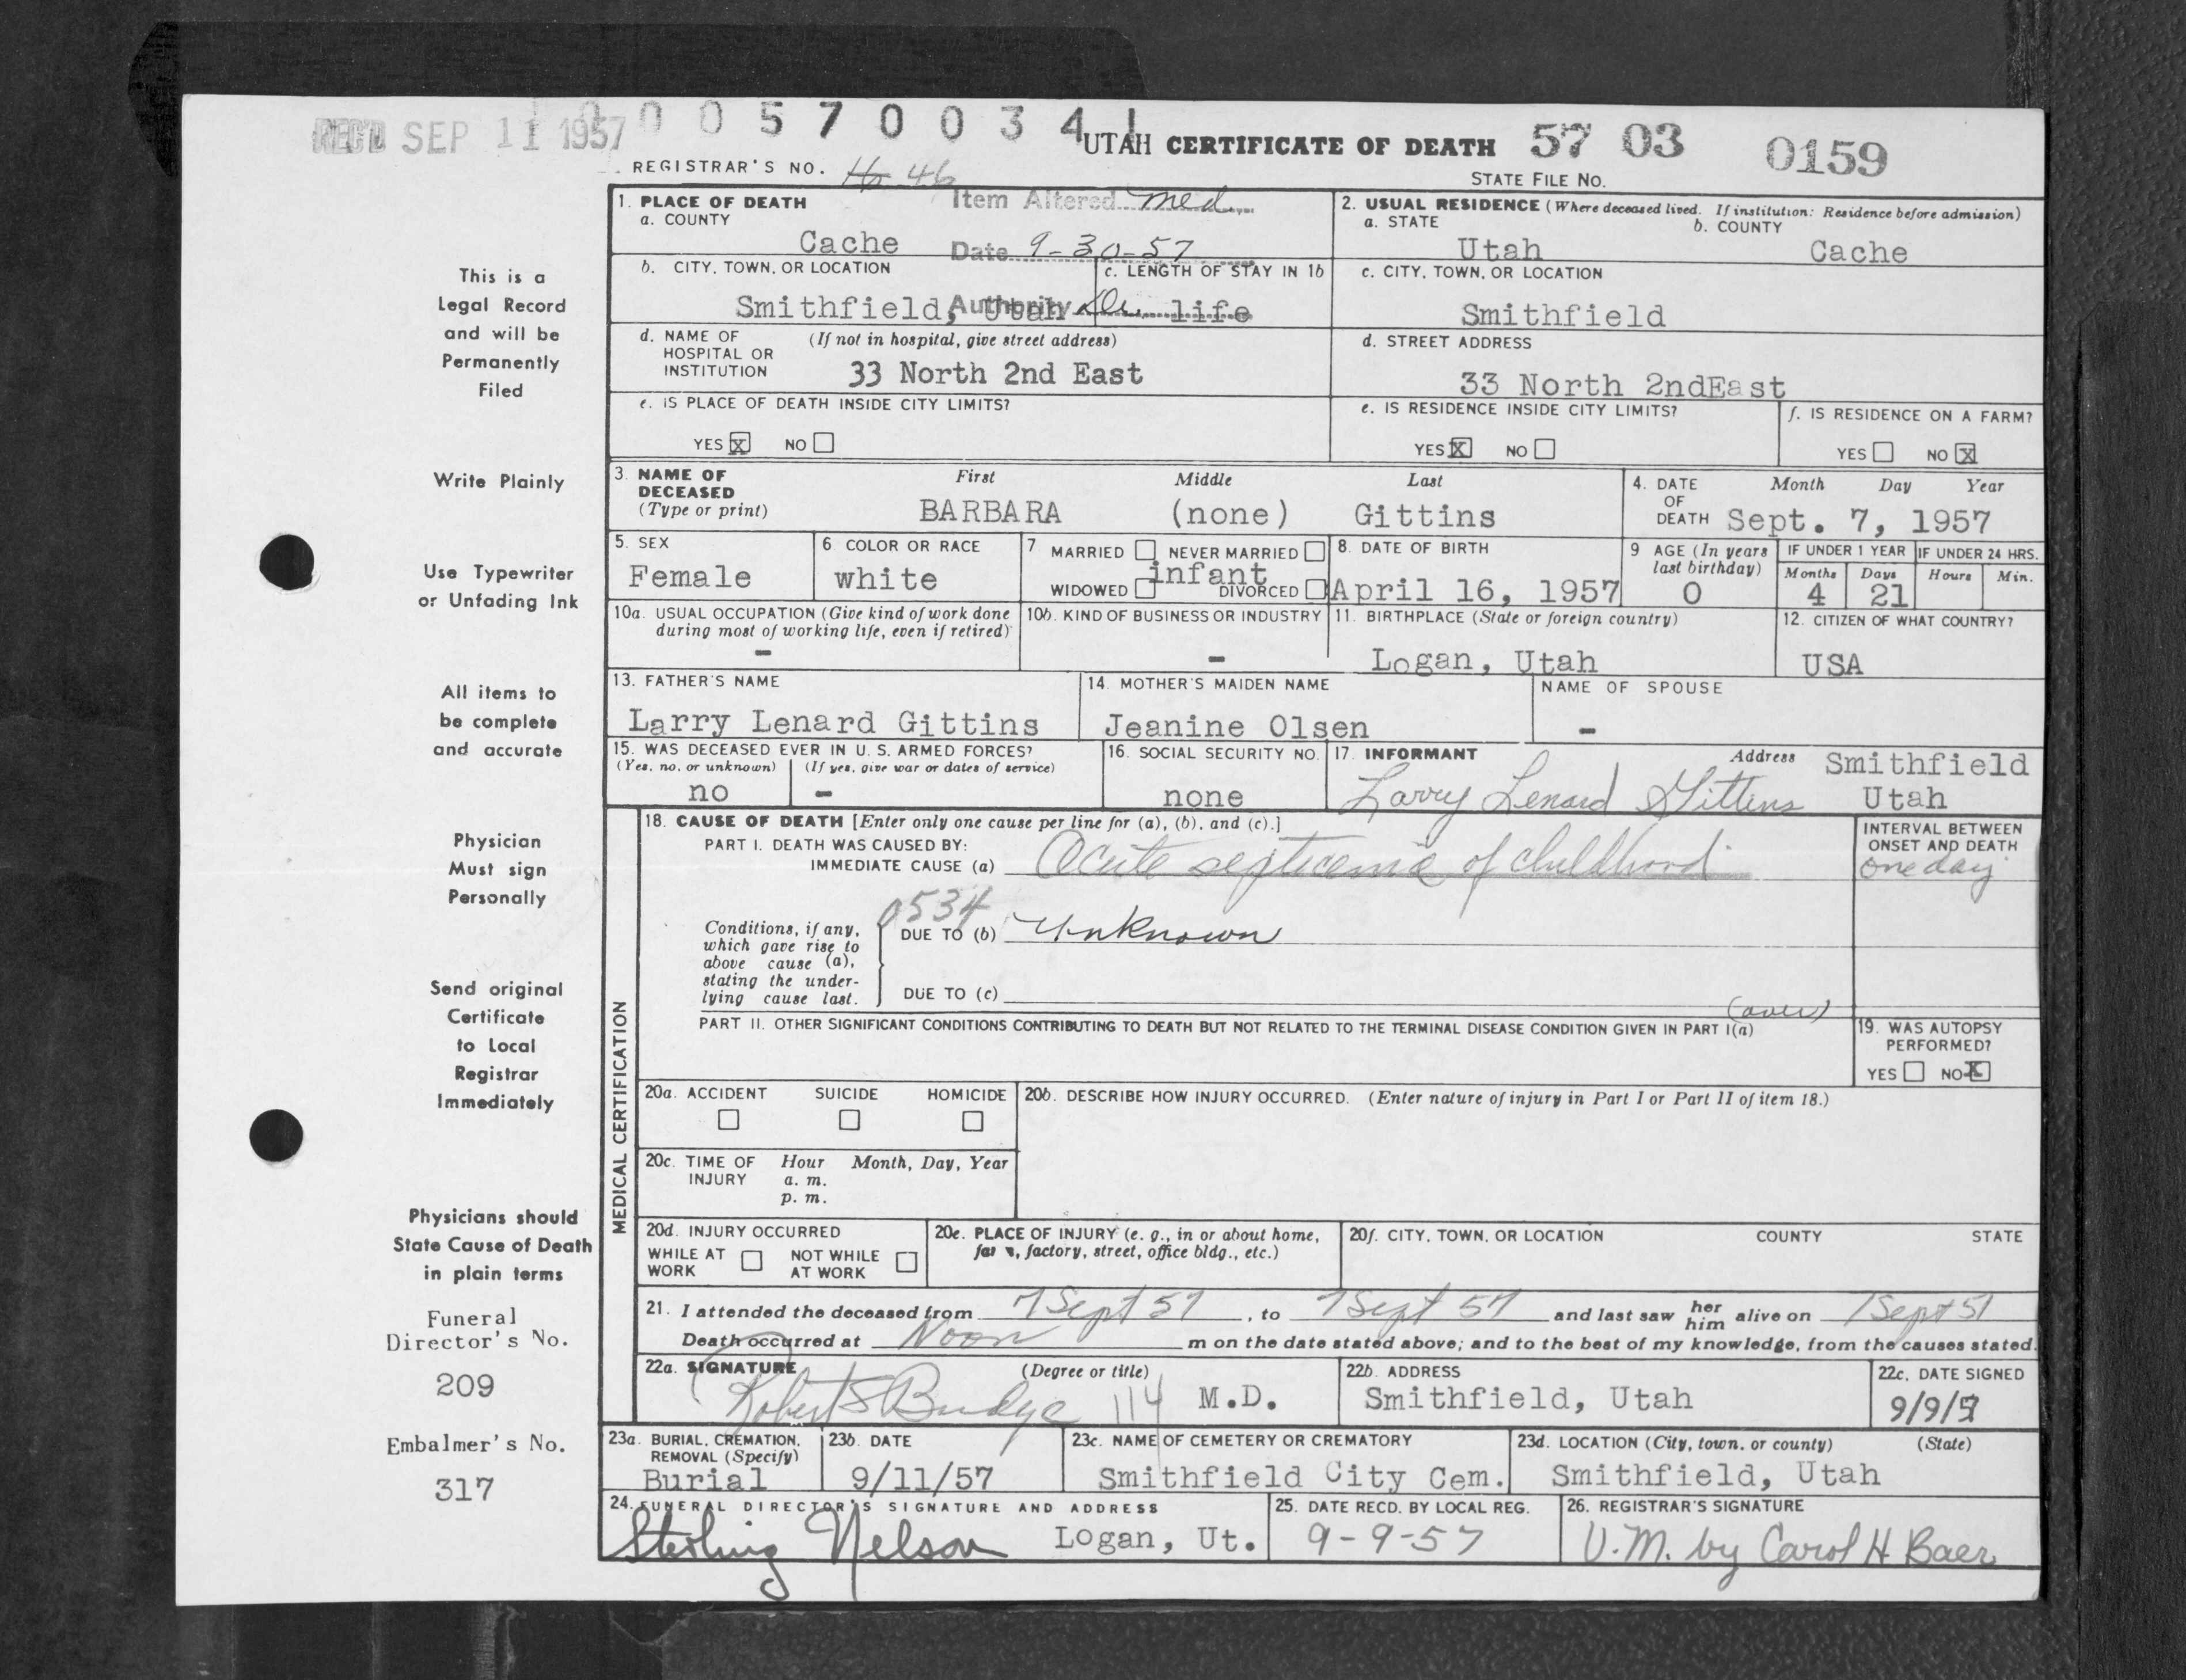 REC'D SEP 11 1957 0 0 0 5 7 0 0 3 4 1
UTAH CERTIFICATE OF DEATH 57 03 0159
REGISTRAR'S NO. 46
STATE FILE NO.
1. PLACE OF DEATH
a. COUNTY
Cache
Item Altered med.
Date 9-30-57
Authority Dr.
2. USUAL RESIDENCE (Where deceased lived. If institution: Residence before admission)
a. STATE
Utah
b. COUNTY
Cache
b. CITY, TOWN, OR LOCATION
Smithfield, Utah
c. LENGTH OF STAY IN 1b
life
c. CITY, TOWN, OR LOCATION
Smithfield
d. NAME OF HOSPITAL OR INSTITUTION (If not in hospital, give street address)
33 North 2nd East
d. STREET ADDRESS
33 North 2ndEast
e. IS PLACE OF DEATH INSIDE CITY LIMITS?
YES X NO
e. IS RESIDENCE INSIDE CITY LIMITS?
YES X NO
f. IS RESIDENCE ON A FARM?
YES NO X
3. NAME OF DECEASED (Type or print)
First Middle Last
BARBARA (none) Gittins
4. DATE OF DEATH
Month Day Year
Sept. 7, 1957
5. SEX
Female
6 COLOR OR RACE
white
7 MARRIED NEVER MARRIED
infant
WIDOWED DIVORCED
8. DATE OF BIRTH
April 16, 1957
9 AGE (In years last birthday)
0
IF UNDER 1 YEAR
Months Days
4 21
IF UNDER 24 HRS.
Hours Min.
10a. USUAL OCCUPATION (Give kind of work done during most of working life, even if retired)
-
10b. KIND OF BUSINESS OR INDUSTRY
-
11. BIRTHPLACE (State or foreign country)
Logan, Utah
12. CITIZEN OF WHAT COUNTRY?
USA
13. FATHER'S NAME
Larry Lenard Gittins
14. MOTHER'S MAIDEN NAME
Jeanine Olsen
NAME OF SPOUSE
-
15. WAS DECEASED EVER IN U. S. ARMED FORCES?
(Yes, no, or unknown) (If yes, give war or dates of service)
no -
16. SOCIAL SECURITY NO.
none
17. INFORMANT Address
Larry Lenard Gittins
Smithfield
Utah
MEDICAL CERTIFICATION
18. CAUSE OF DEATH [Enter only one cause per line for (a), (b), and (c).]
PART I. DEATH WAS CAUSED BY:
IMMEDIATE CAUSE (a) Acute septicemia of childhood
INTERVAL BETWEEN ONSET AND DEATH
one day
0534
Conditions, if any, which gave rise to above cause (a), stating the underlying cause last.
DUE TO (b) Unknown
DUE TO (c)
(over)
PART II. OTHER SIGNIFICANT CONDITIONS CONTRIBUTING TO DEATH BUT NOT RELATED TO THE TERMINAL DISEASE CONDITION GIVEN IN PART I(a)
19. WAS AUTOPSY PERFORMED?
YES NO X
20a. ACCIDENT SUICIDE HOMICIDE
20b. DESCRIBE HOW INJURY OCCURRED. (Enter nature of injury in Part I or Part II of item 18.)
20c. TIME OF INJURY Hour Month, Day, Year
a. m.
p. m.
20d. INJURY OCCURRED
WHILE AT WORK NOT WHILE AT WORK
20e. PLACE OF INJURY (e. g., in or about home, farm, factory, street, office bldg., etc.)
20f. CITY, TOWN, OR LOCATION COUNTY STATE
21. I attended the deceased from 7 Sept 57, to 7 Sept 57 and last saw her him alive on 7 Sept 57
Death occurred at Noon m on the date stated above; and to the best of my knowledge, from the causes stated.
22a. SIGNATURE (Degree or title)
Robert S Budge 114 M.D.
22b. ADDRESS
Smithfield, Utah
22c. DATE SIGNED
9/9/57
23a. BURIAL, CREMATION, REMOVAL (Specify)
Burial
23b. DATE
9/11/57
23c. NAME OF CEMETERY OR CREMATORY
Smithfield City Cem.
23d. LOCATION (City, town, or county) (State)
Smithfield, Utah
24. FUNERAL DIRECTOR'S SIGNATURE AND ADDRESS
Sterling Nelson Logan, Ut.
25. DATE RECD. BY LOCAL REG.
9-9-57
26. REGISTRAR'S SIGNATURE
V.M. by Carol H Baer
This is a
Legal Record
and will be
Permanently
Filed
Write Plainly
Use Typewriter
or Unfading Ink
All items to
be complete
and accurate
Physician
Must sign
Personally
Send original
Certificate
to Local
Registrar
Immediately
Physicians should
State Cause of Death
in plain terms
Funeral
Director's No.
209
Embalmer's No.
317